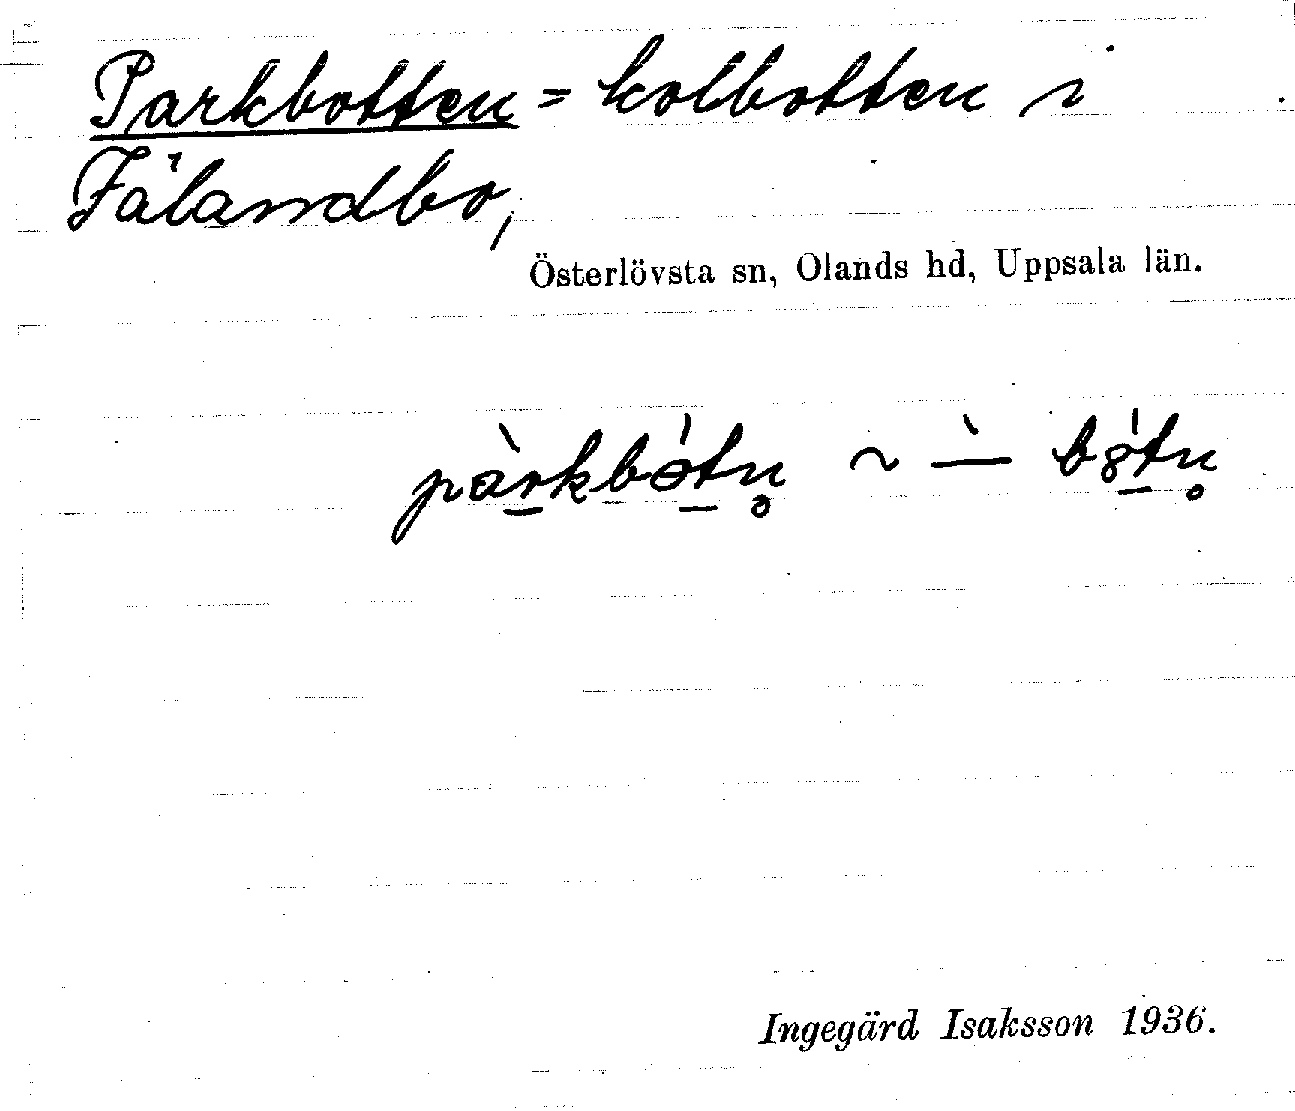 Parkbotten = kolbotten i
Fälandbo,
Österlövsta sn, Olands hd, Uppsala län.
pàrkbótn̥ ~ –̀ bótn̥
Ingegärd Isaksson 1936.